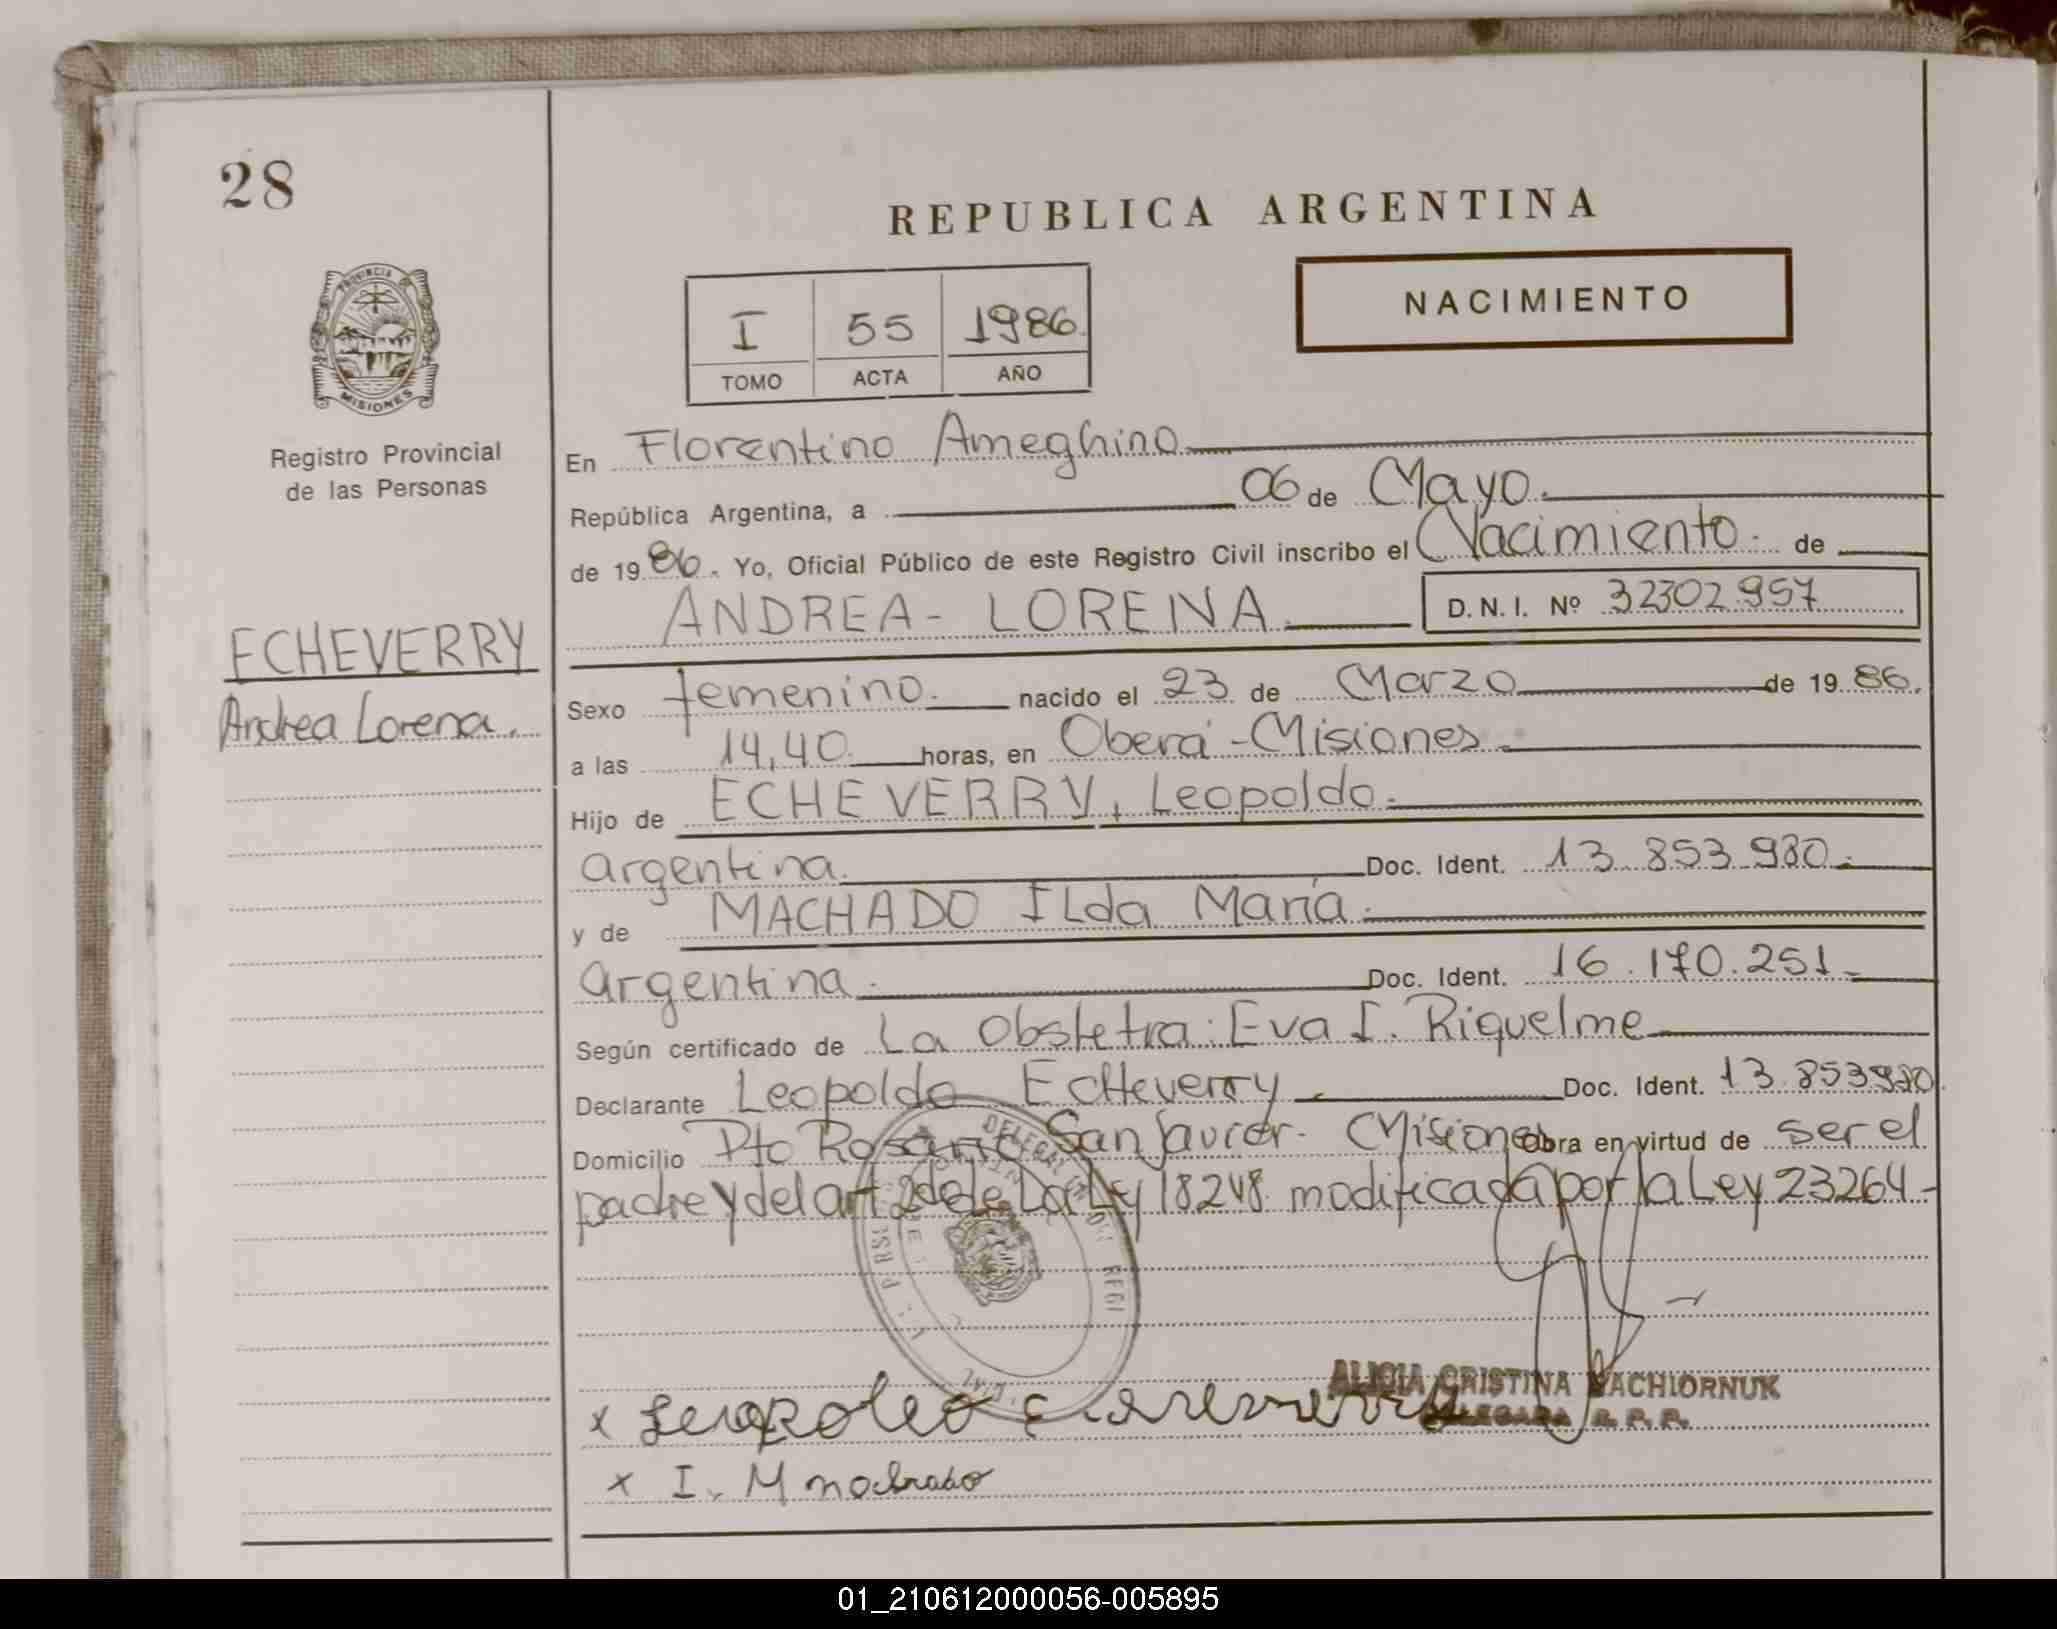 28
REPUBLICA ARGENTINA
NACIMIENTO
I 55 1986.
TOMO ACTA AÑO
PROVINCIA
MISIONES
Registro Provincial
de las Personas
ECHEVERRY
Andrea Lorena.
En Florentino Ameghino
República Argentina, a 06 de Mayo.
de 19 86. Yo, Oficial Público de este Registro Civil inscribo el Nacimiento. de
ANDREA - LORENA. D.N.I. Nº 32302957
Sexo femenino. nacido el 23 de Marzo de 19 86.
a las 14,40 horas, en Oberá - Misiones.
Hijo de ECHEVERRY, Leopoldo.
argentina. Doc. Ident. 13.853.980.
y de MACHADO ILda María.
argentina. Doc. Ident. 16.170.251
Según certificado de La Obstetra: Eva I. Riquelme
Declarante Leopoldo EcHeverry Doc. Ident. 13.853980
Domicilio Pto Rosario San Javier. Misiones obra en virtud de ser el
padre y del art de La Ley 18248 modificada por la Ley 23264
ALICIA CRISTINA
DELEGADA R. P. P.
x Leopoldo Echeverry
x I. M machado
01_210612000056-005895